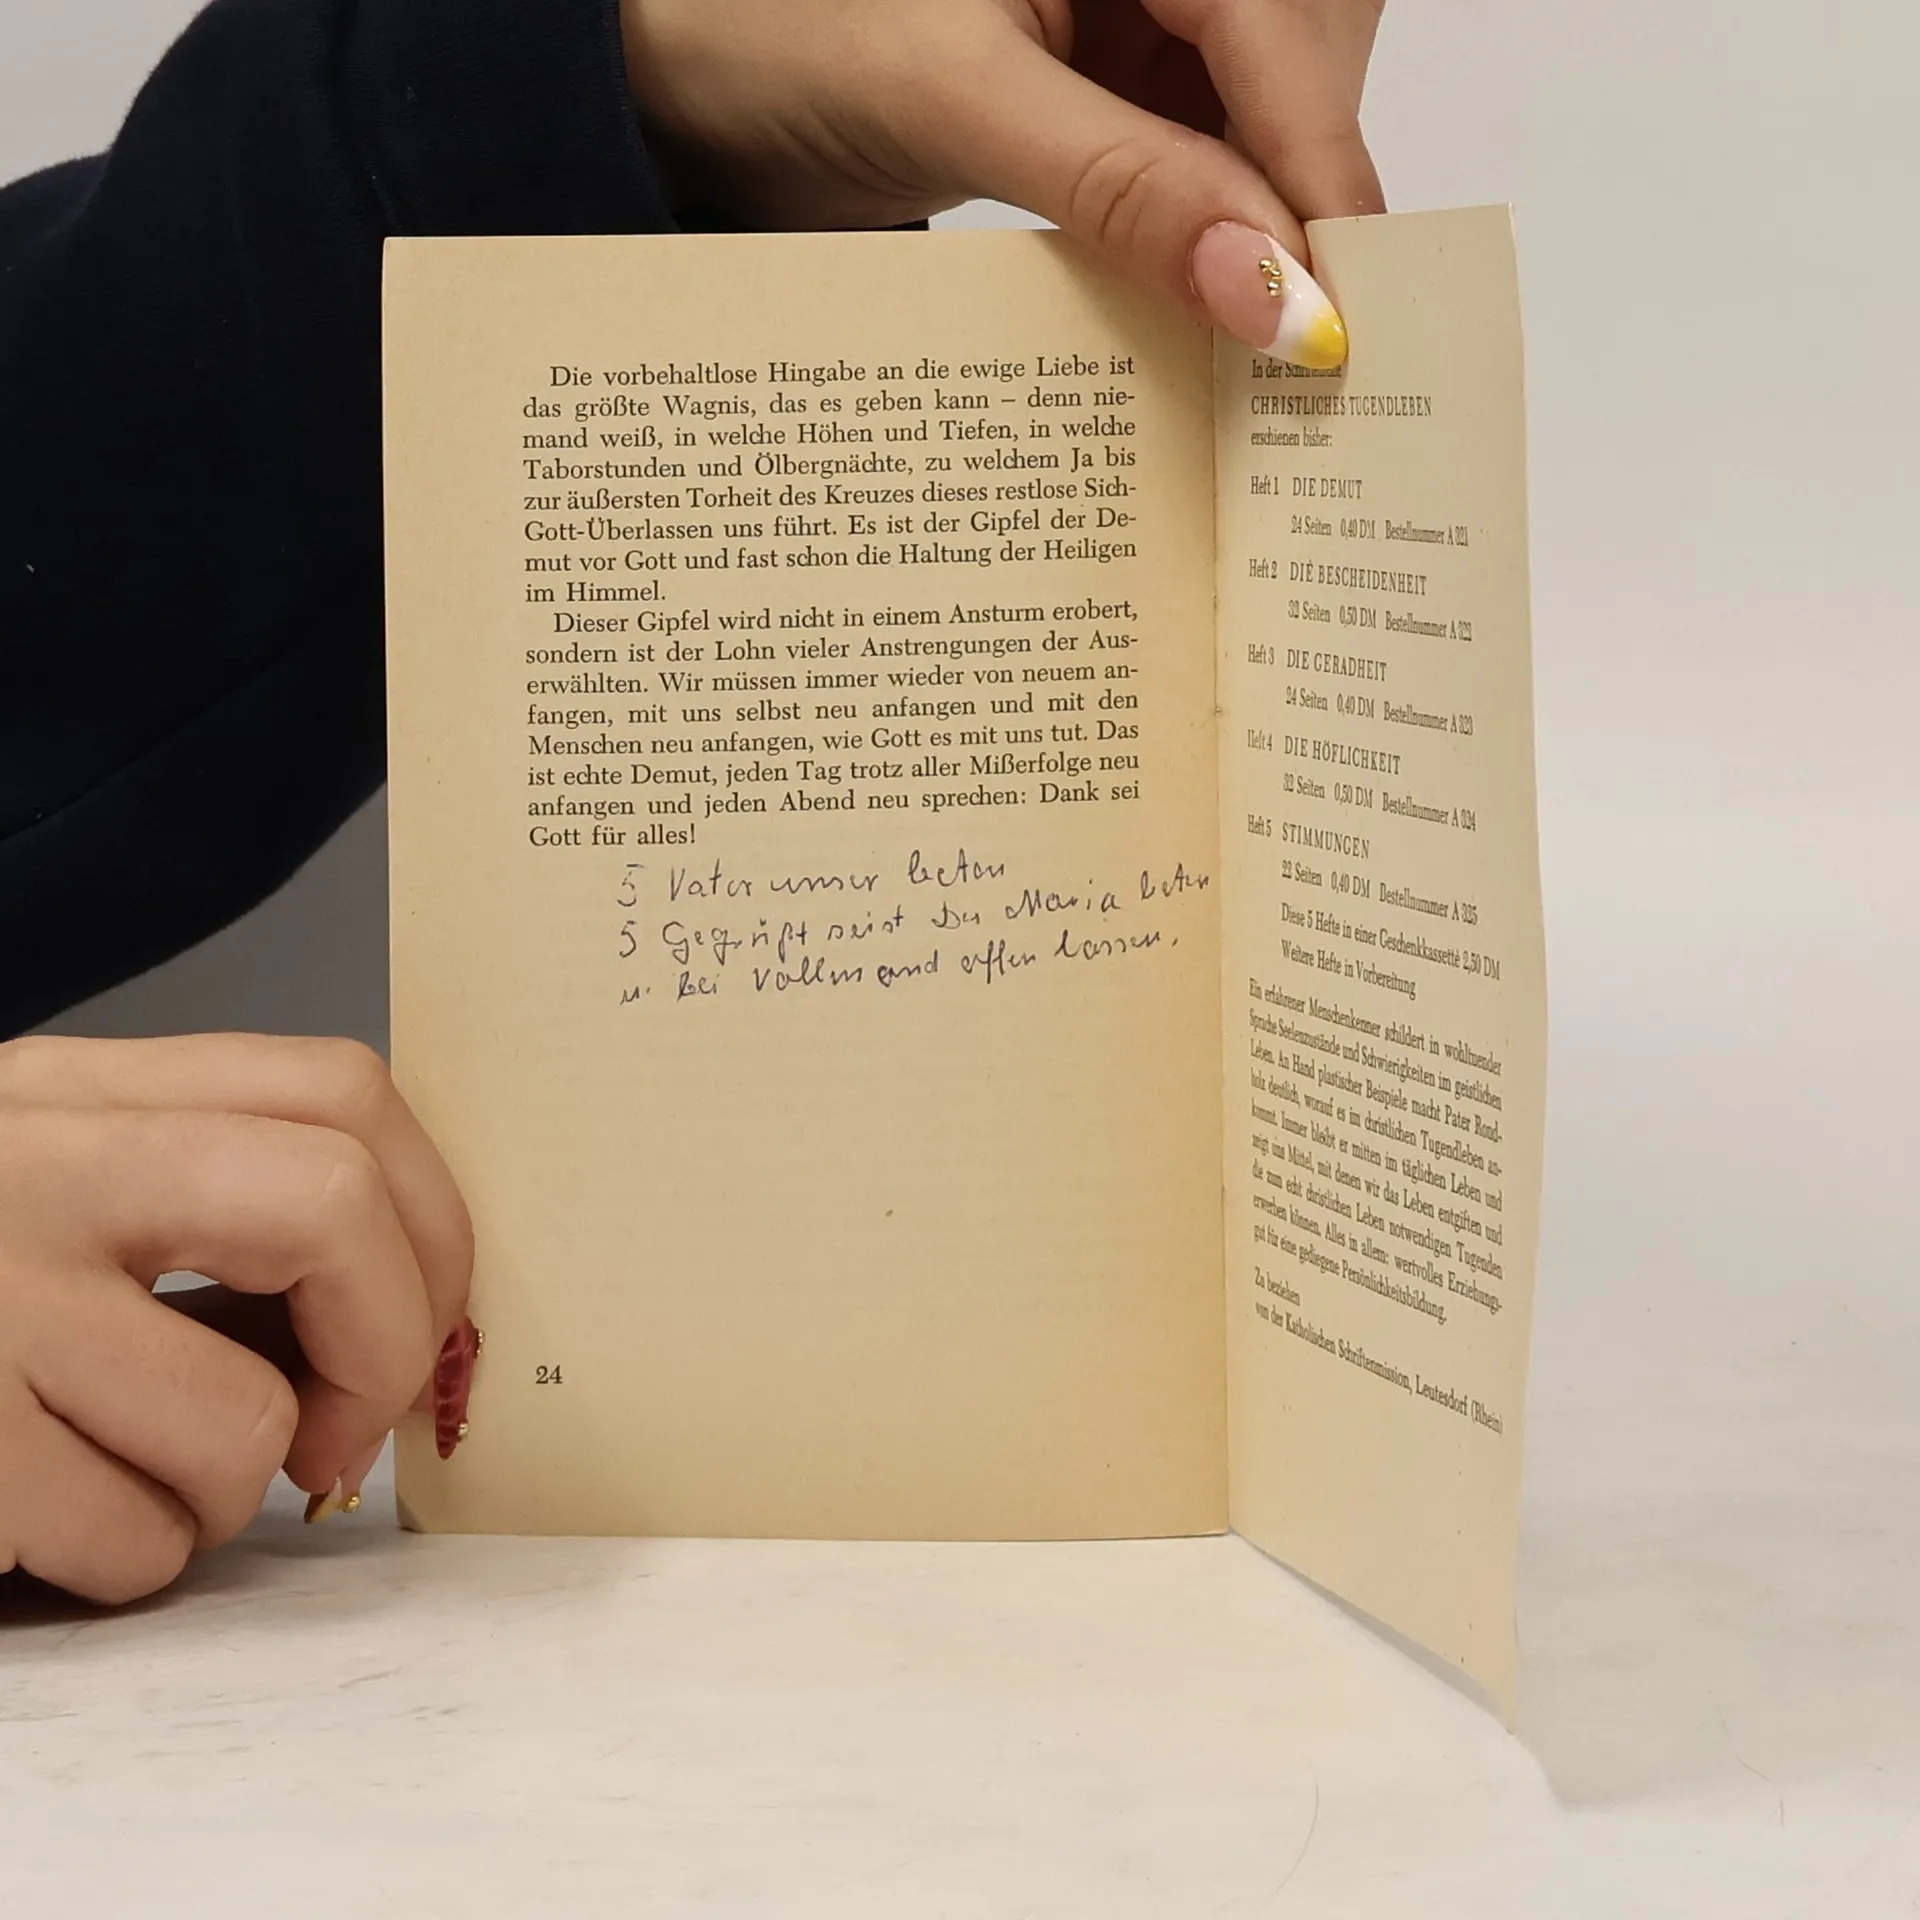 Die vorbehaltlose Hingabe an die ewige Liebe ist
das größte Wagnis, das es geben kann – denn nie-
mand weiß, in welche Höhen und Tiefen, in welche
Taborstunden und Ölbergnächte, zu welchem Ja bis
zur äußersten Torheit des Kreuzes dieses restlose Sich-
Gott-Überlassen uns führt. Es ist der Gipfel der De-
mut vor Gott und fast schon die Haltung der Heiligen
im Himmel.
Dieser Gipfel wird nicht in einem Ansturm erobert,
sondern ist der Lohn vieler Anstrengungen der Aus-
erwählten. Wir müssen immer wieder von neuem an-
fangen, mit uns selbst neu anfangen und mit den
Menschen neu anfangen, wie Gott es mit uns tut. Das
ist echte Demut, jeden Tag trotz aller Mißerfolge neu
anfangen und jeden Abend neu sprechen: Dank sei
Gott für alles!
5 Vater unser beten
5 Gegrüßt seist Du Maria beten
u. bei Vollmond offen lassen.
24
In der
CHRISTLICHES TUGENDLEBEN
erschienen bisher:
Heft 1 DIE DEMUT
24 Seiten 0,40 DM Bestellnummer A 321
Heft 2 DIE BESCHEIDENHEIT
32 Seiten 0,50 DM Bestellnummer A 322
Heft 3 DIE GERADHEIT
24 Seiten 0,40 DM Bestellnummer A 323
Heft 4 DIE HÖFLICHKEIT
32 Seiten 0,50 DM Bestellnummer A 324
Heft 5 STIMMUNGEN
22 Seiten 0,40 DM Bestellnummer A 325
Diese 5 Hefte in einer Geschenkkassette 2,50 DM
Weitere Hefte in Vorbereitung
Ein erfahrener Menschenkenner schildert in wohltuender
Sprache Seelenzustände und Schwierigkeiten im geistlichen
Leben. An Hand plastischer Beispiele macht Pater Rond-
holz deutlich, worauf es im christlichen Tugendleben an-
kommt. Immer bleibt er mitten im täglichen Leben und
zeigt uns Mittel, mit denen wir das Leben entgiften und
die zum echt christlichen Leben notwendigen Tugenden
erwerben können. Alles in allem: wertvolles Erziehungs-
gut für eine gediegene Persönlichkeitsbildung.
Zu beziehen
von der Katholischen Schriftenmission, Leutesdorf (Rhein)